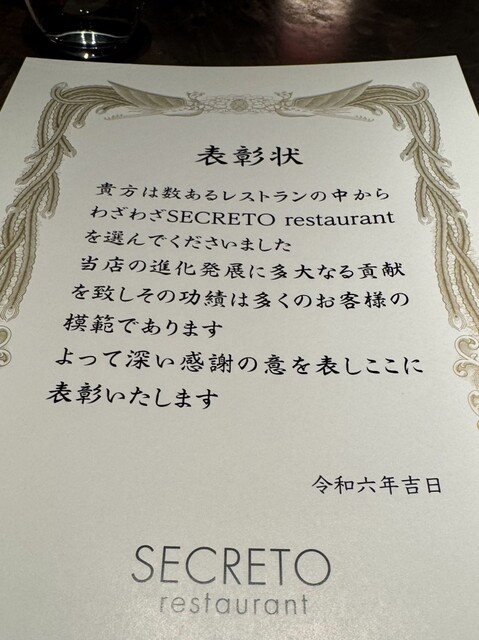 表彰状
貴方は数あるレストランの中から
わざわざSECRETO restaurant
を選んでくださいました
当店の進化発展に多大なる貢献
を致しその功績は多くのお客様の
模範であります
よって深い感謝の意を表しここに
表彰いたします
令和六年吉日
SECRETO
restaurant